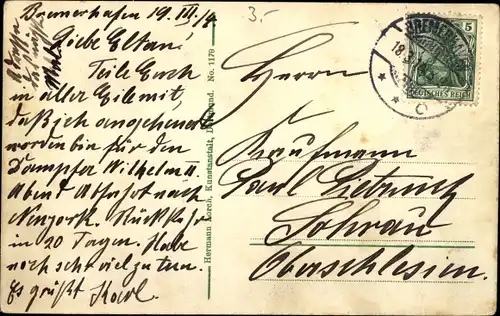 Bremerhafen 19. III./8
Liebe Eltern!
Teile Euch
in aller Eile mit,
daß ich angeheuert
worden bin für den
Dampfer Wilhelm II
Abfahrt nach
Neuyork. Rückkehr
in 20 Tagen. Habe
noch sehr viel zu tun.
Es grüßt Karl.
3.-
Hermann Lorch, Kunstanstalt, Dortmund. No. 1179
Herrn
Kaufmann
Paul
Sohrau
Oberschlesien.
BREMERHAVEN
18
5
DEUTSCHES REICH